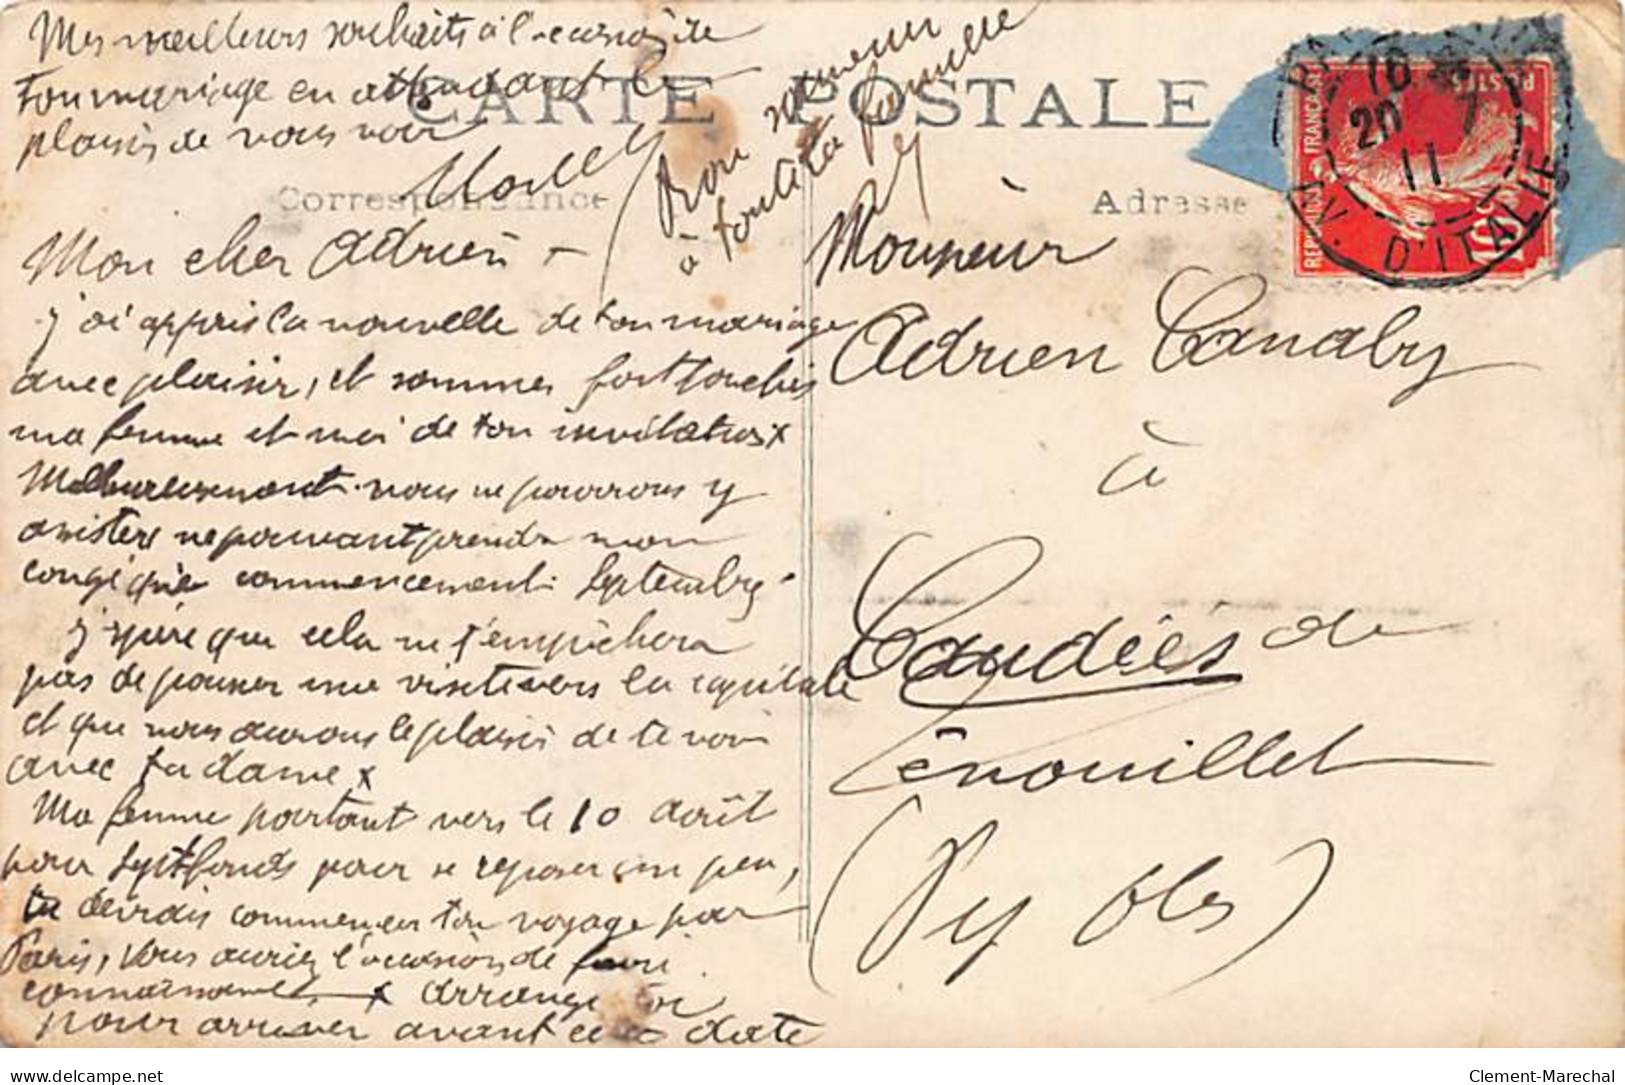 Mes meilleurs souhaits à l'occasion de
ton mariage en attendant le
plaisir de vous voir
CARTE POSTALE
Correspondance
Adresse
Bon souvenir
à toute la famille
Mon cher Adrien –
j'ai appris la nouvelle de ton mariage
avec plaisir, et sommes fort touchés
ma femme et moi de ton invitation x
Malheureusement nous ne pourrons y
assister ne pouvant prendre mon
congé que commencement Septembre
j'espère que cela ne t'empêchera
pas de pousser une visite vers la capitale
et que nous aurons le plaisir de te voir
avec ta dame x
Ma femme partant vers le 10 août
pour Septfonds pour se reposer un peu,
tu devrais commencer ton voyage par
Paris, vous auriez l'occasion de faire
connaissance x arrange toi
pour arriver avant cette date
Monsieur
Adrien Canaby
à
Caudiès de
Fenouillet
(Py Oles)
REPUBLIQUE FRANÇAISE
POSTES
10
20 7
11
AV. D'ITALIE
delcampe.net
Clement-Marechal